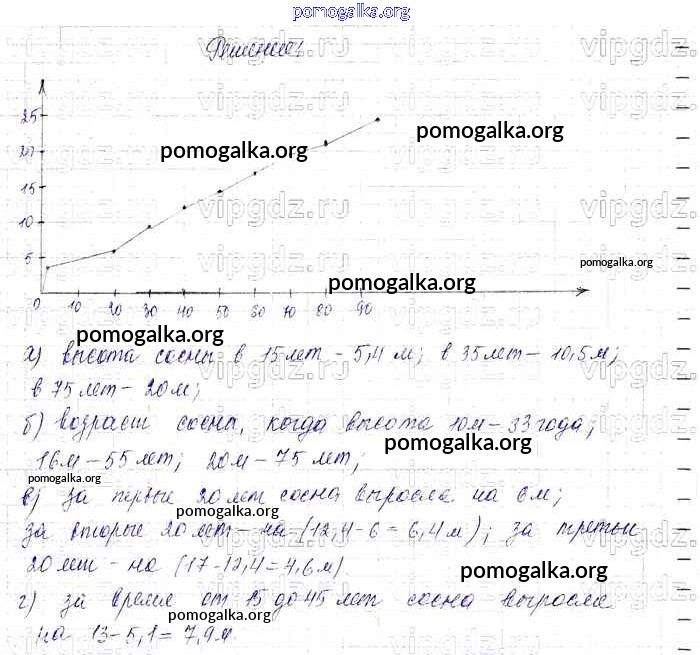 pomogalka.org
Решение:
25
20
15
10
5
0 10 20 30 40 50 60 70 80 90
а) высота сосны в 15 лет - 5,4 м; в 35 лет - 10,5 м;
в 75 лет - 20 м;
б) возраст сосны, когда высота 10 м - 33 года;
16 м - 55 лет; 20 м - 75 лет;
в) за первые 20 лет сосна выросла на 6 м;
за вторые 20 лет - на (12,4 - 6 = 6,4 м); за третьи
20 лет - на (17 - 12,4 = 4,6 м)
г) за время от 15 до 45 лет сосна выросла
на 13 - 5,1 = 7,9 м.
pomogalka.org
pomogalka.org
pomogalka.org
pomogalka.org
pomogalka.org
pomogalka.org
pomogalka.org
pomogalka.org
pomogalka.org
vipgdz.ru